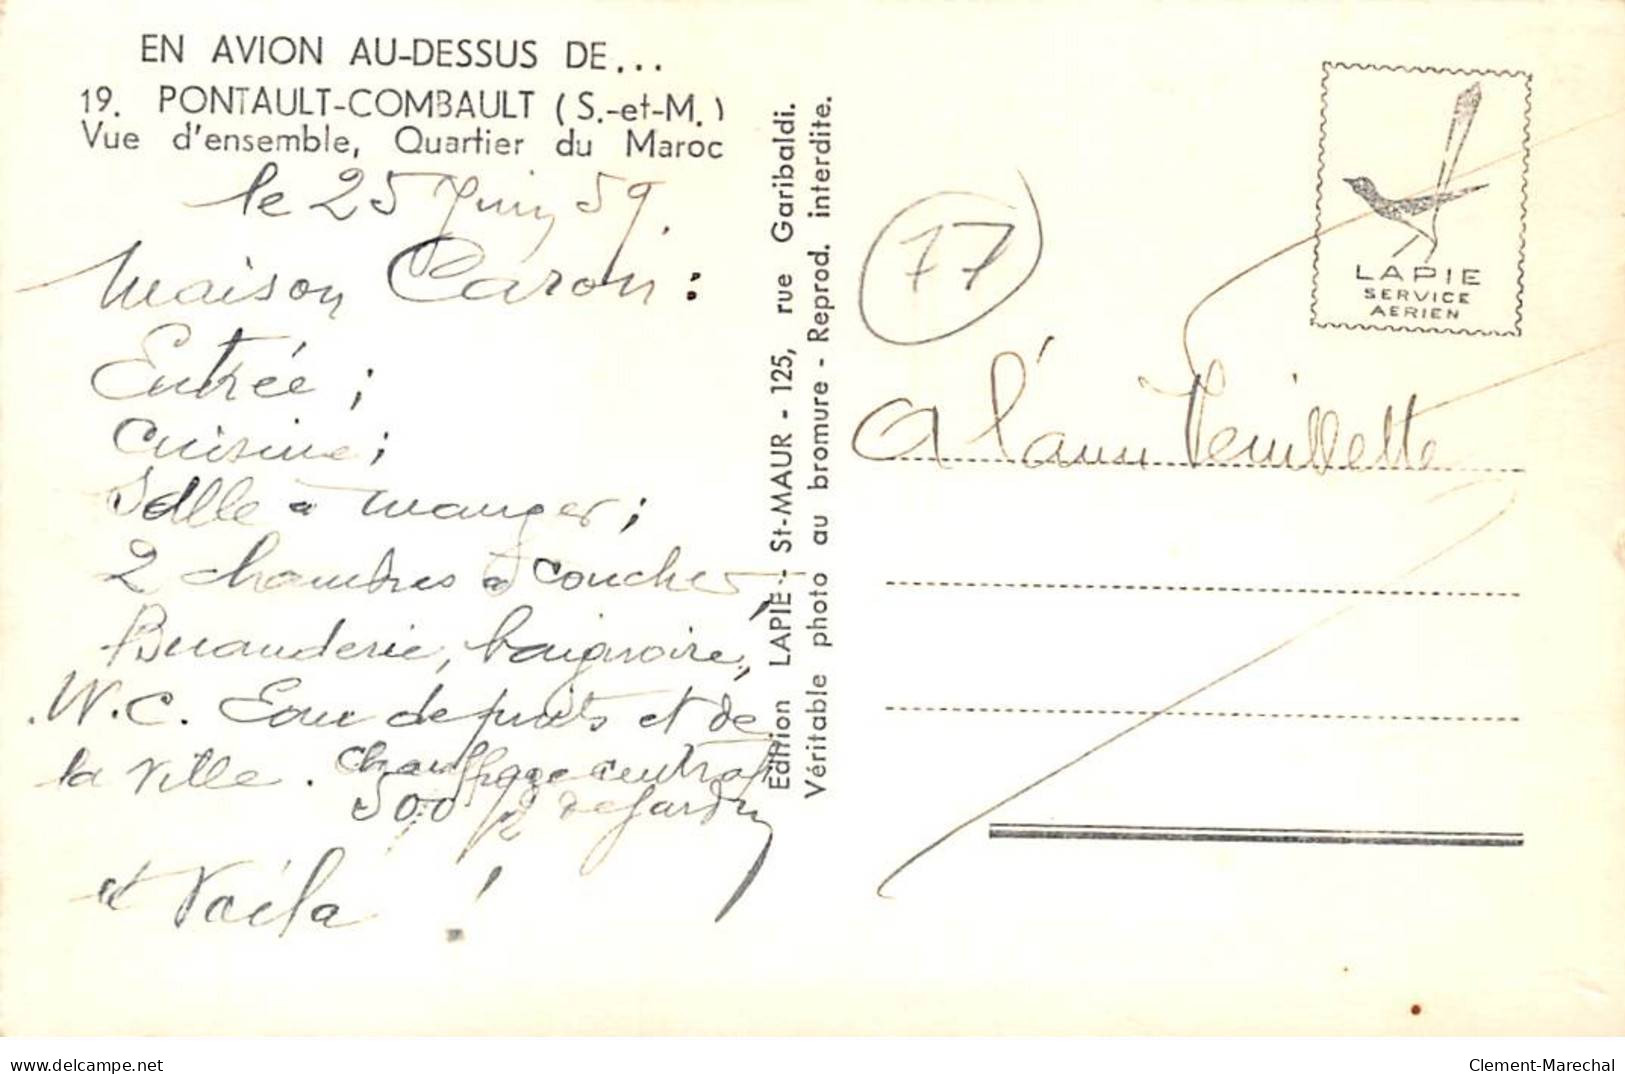 EN AVION AU-DESSUS DE...
19. PONTAULT-COMBAULT (S.-et-M.)
Vue d'ensemble, Quartier du Maroc
le 25 Juin 59.
Maison Caron :
Entrée ;
Cuisine ;
Salle a manger ;
2 chambres a coucher,
Buanderie, baignoire,
W.C. Eau de puits et de
la ville. Chauffage central
500 m2 de Jardin
et Voila !
Edition LAPIE - St-MAUR - 125, rue Garibaldi.
Véritable photo au bromure - Reprod. interdite.
77
LAPIE
SERVICE
AERIEN
A l'ami Veuillette
delcampe.net
Clement-Marechal